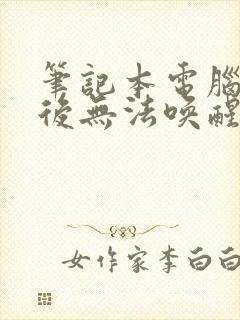 筆記本電腦
後無法喚醒
女作家李白白